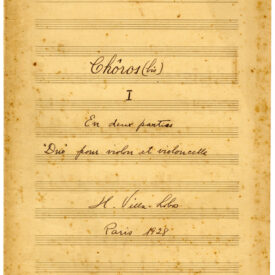 Chôros (bis)
I
En deux parties
"Duo" pour violon et violoncelle
H. Villa-Lobos
Paris 1928